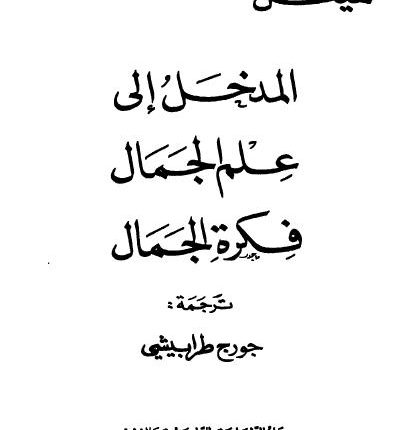 هيغل
المدخل إلى
علم الجمال
فكرة الجمال
ترجمة:
جورج طرابيشي